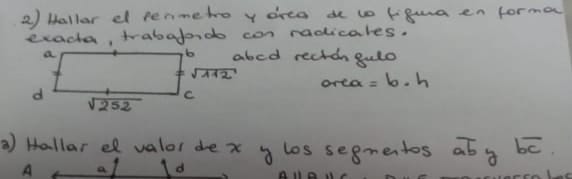 2) Hallar el perimetro y área de la figura en forma
exacta, trabajando con radicales.
a b abcd rectángulo
√112
area = b.h
d c
√252
3) Hallar el valor de x y los segmentos ab y bc.
A a d A||B||C